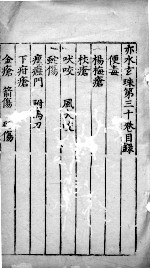 赤水玄珠第三十卷目錄
便毒
楊梅瘡
杖瘡
咬 風入
傷
瘰癧門 附馬刀
下疳瘡
金瘡 箭傷 傷